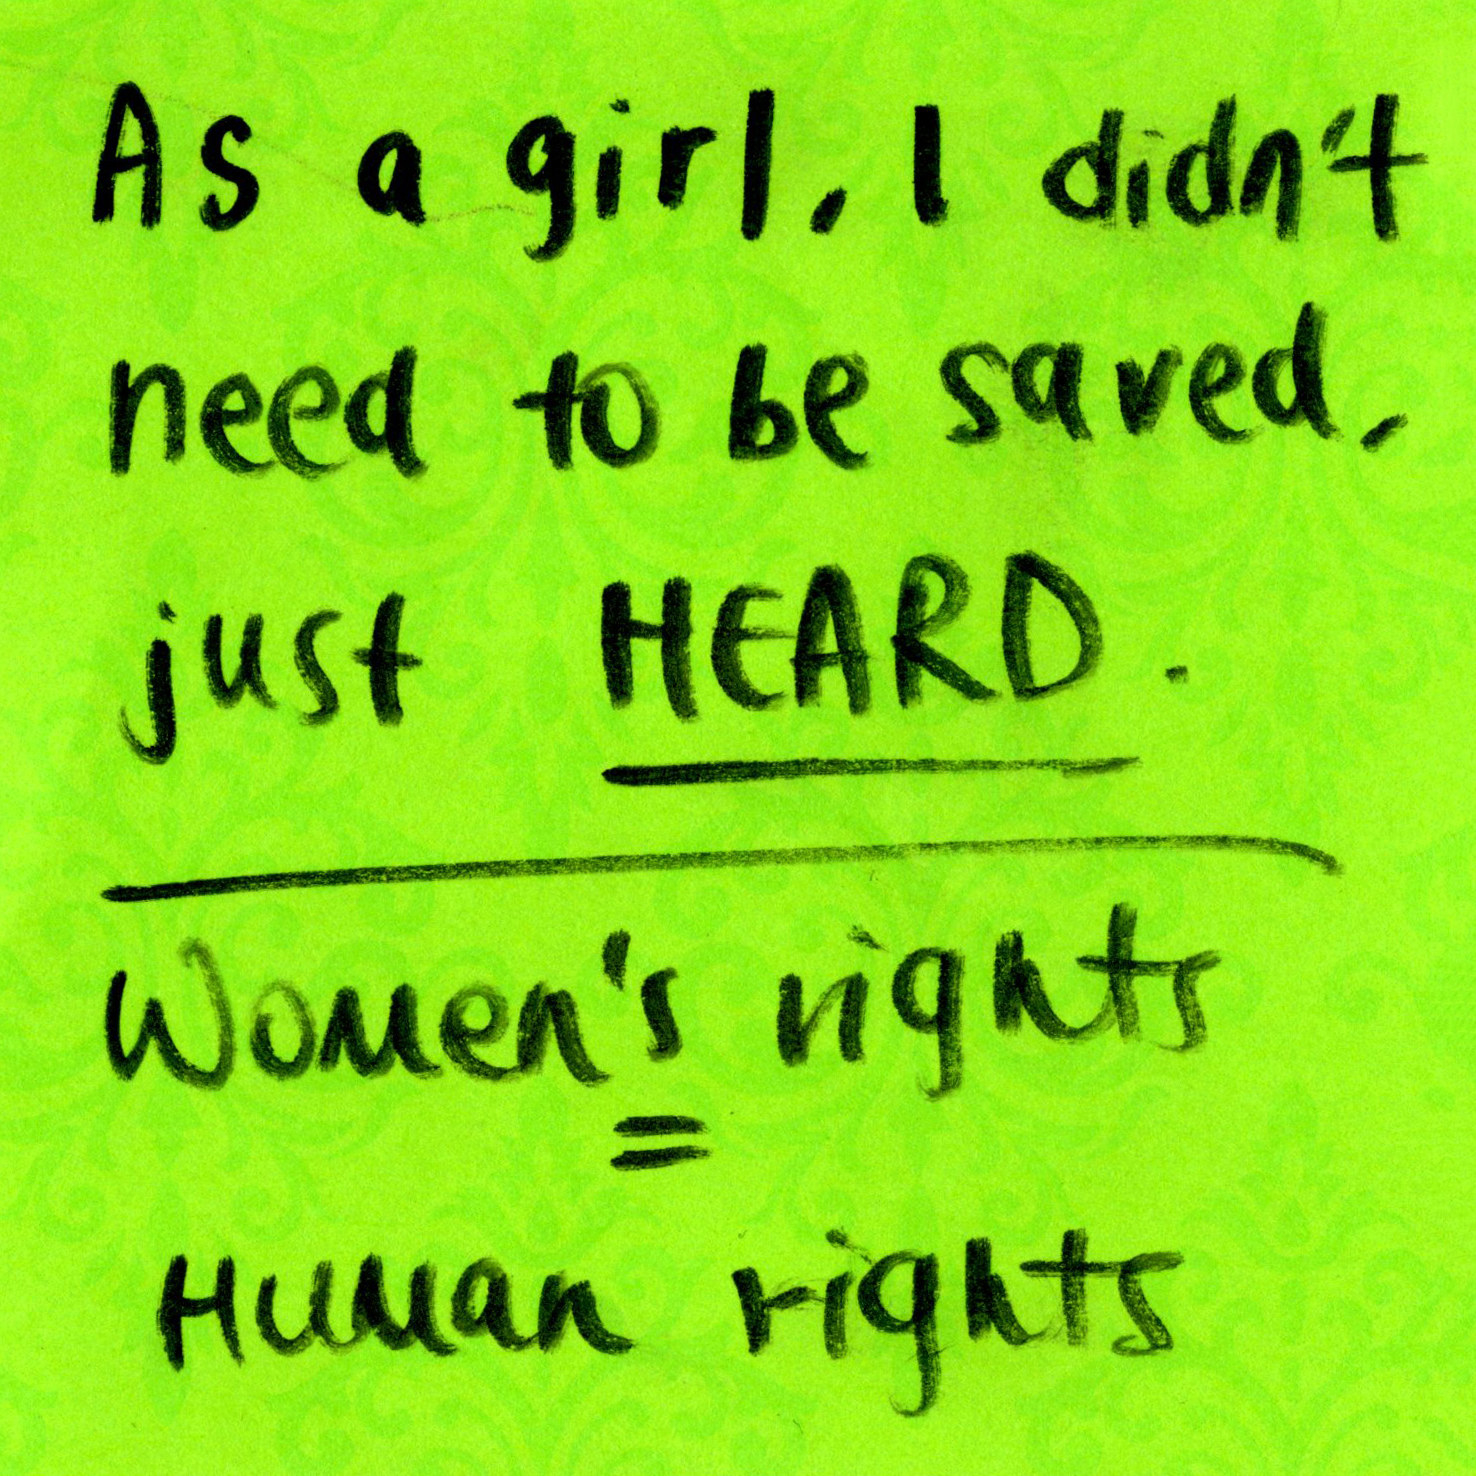 As a girl, I didn't
need to be saved,
just HEARD.
Women's rights
=
Human rights